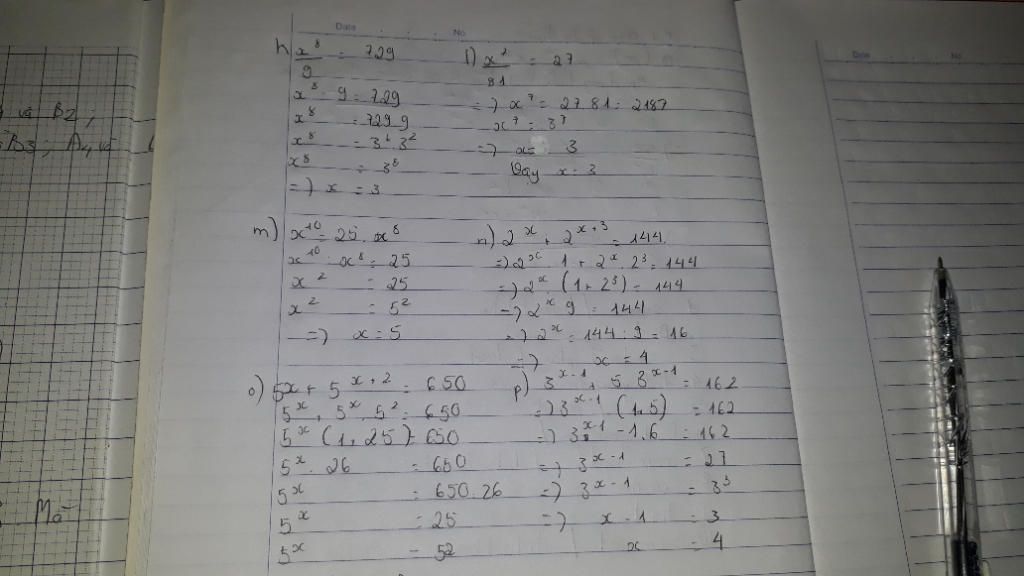 Date No
h x⁸/9 = 729
x⁸ : 9 = 729
x⁸ = 729.9
x⁸ = 3⁶ 3²
x⁸ = 3⁸
=) x = 3
l) x⁷/81 = 27
=) x⁷ = 27.81 = 2187
x⁷ = 3⁷
=) x = 3
Vậy x = 3
m) x¹⁰ = 25. x⁸
x¹⁰ : x⁸ = 25
x² = 25
x² = 5²
=) x = 5
n) 2ˣ + 2ˣ⁺³ = 144
=) 2ˣ . 1 + 2ˣ . 2³ = 144
=) 2ˣ . (1 + 2³) = 144
=) 2ˣ 9 = 144
=) 2ˣ = 144 : 9 = 16
=) x = 4
o) 5x + 5ˣ⁺² = 650
5ˣ + 5ˣ . 5² = 650
5ˣ (1 + 25) = 650
5ˣ . 26 = 650
5ˣ = 650 : 26
5ˣ = 25
5ˣ = 52
p) 3ˣ⁻¹ + 5 3ˣ⁻¹ = 162
=) 3ˣ⁻¹ (1 + 5) = 162
=) 3ˣ⁻¹ 6 = 162
=) 3ˣ⁻¹ = 27
=) 3ˣ⁻¹ = 3³
=) x - 1 = 3
x = 4
và B2 ;
B3 ; A4 và
Mô
Date No